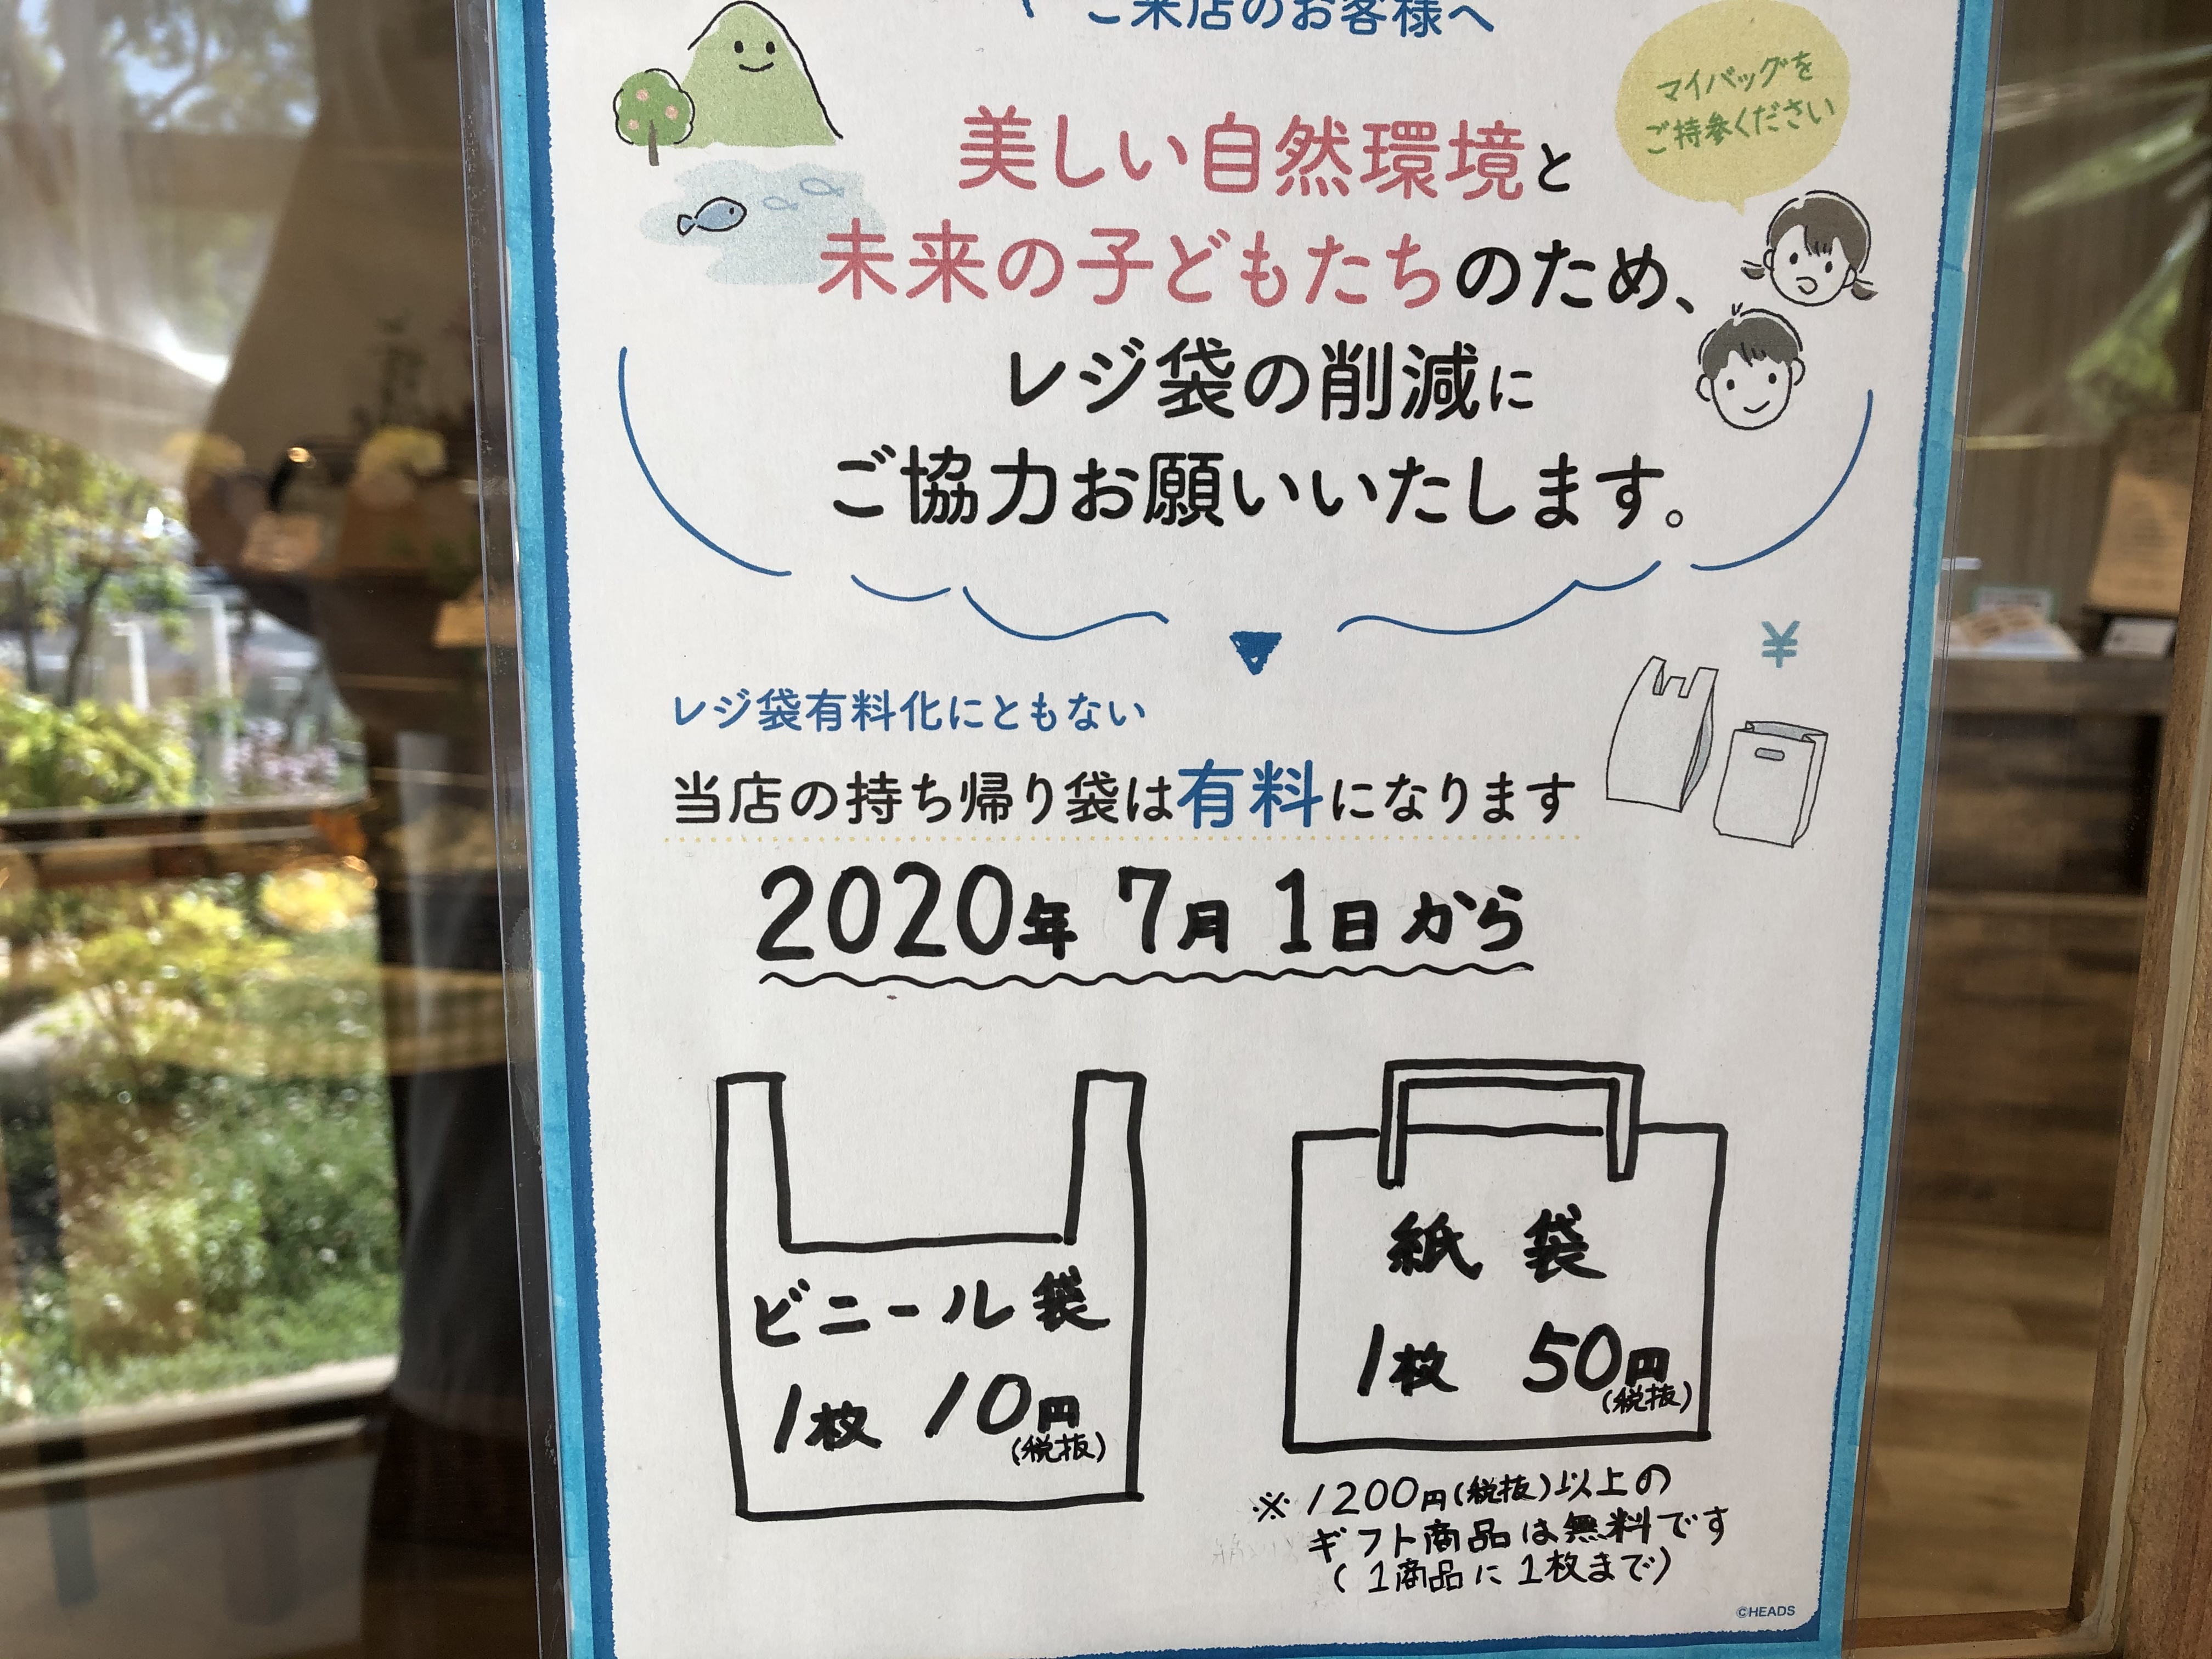 ご来店のお客様へ
マイバッグを
ご持参ください
美しい自然環境と
未来の子どもたちのため、
レジ袋の削減に
ご協力お願いいたします。
¥
レジ袋有料化にともない
当店の持ち帰り袋は有料になります
2020年 7月 1日から
ビニール袋
1枚 10円
(税抜)
紙袋
1枚 50円
(税抜)
※1200円(税抜)以上の
ギフト商品は無料です
(1商品に1枚まで)
©HEADS